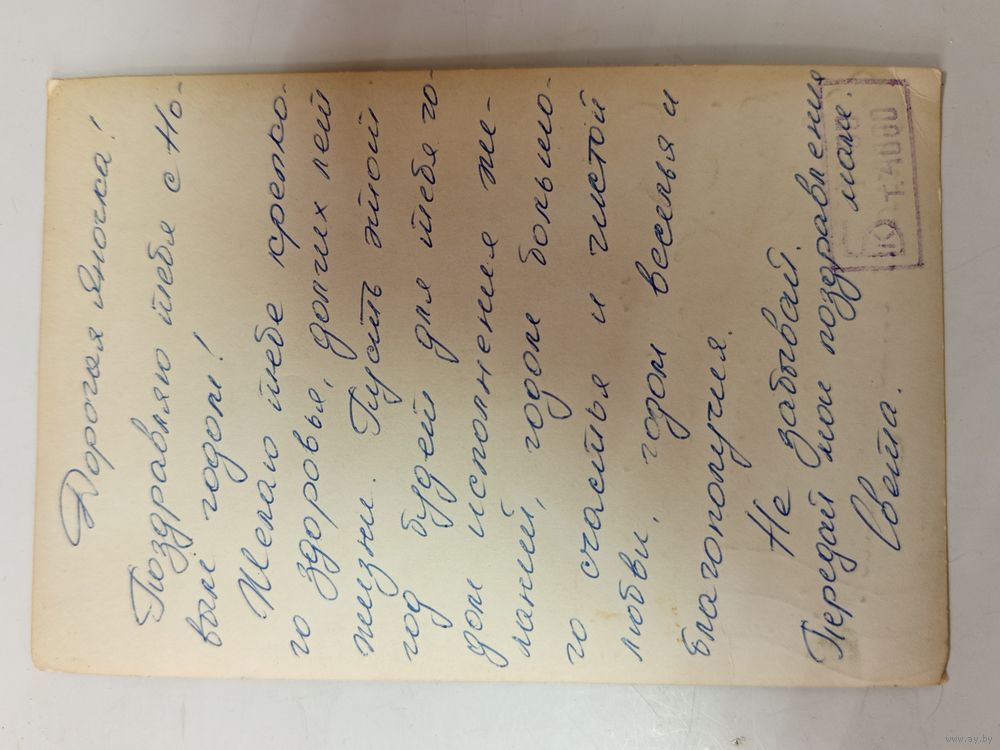 Дорогая Яночка!
Поздравляю тебя с Но-
вым годом!
Желаю тебе крепко-
го здоровья, долгих лет
жизни. Пусть этот
год будет для тебя го-
дом исполнения же-
ланий, годом большо-
го счастья и чистой
любви, годом веселья и
благополучия.
Не забывай.
Передай мои поздравления
маме.
Света.
т. 4000
www.ay.by